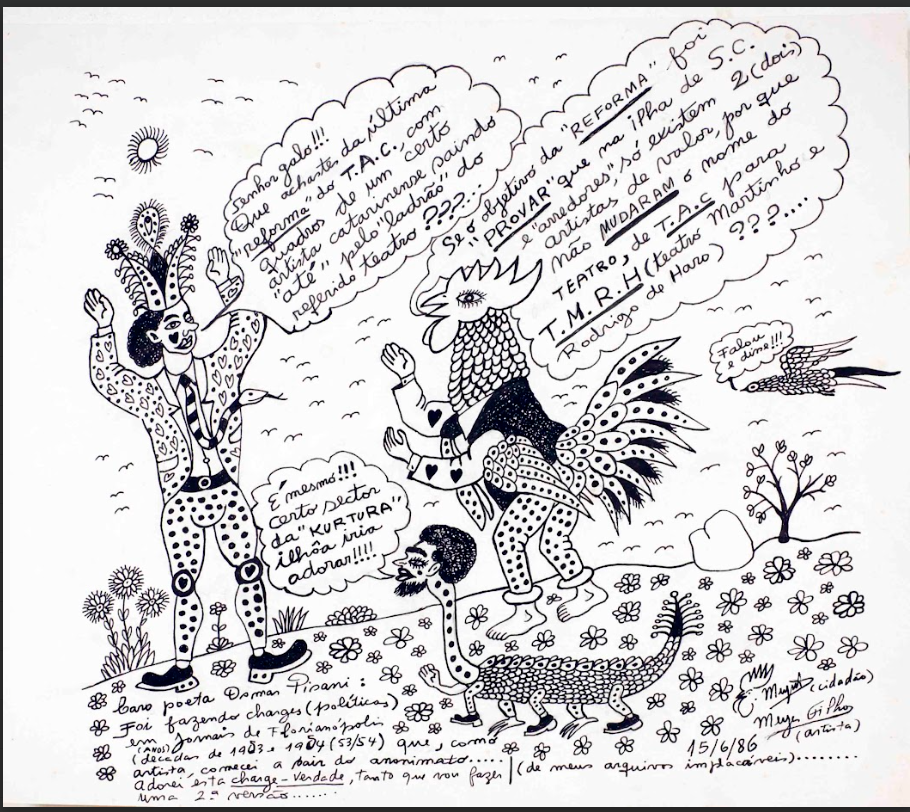 Senhor galo!!!
Que achastes da última
"reforma" do T.A.C., com
quadro de um certo
artista catarinense saindo
"até" pelo "ladrão" do
referido teatro ???...
Se o objetivo da "REFORMA" foi
"PROVAR" que na ilha de S.C.
e "arredores", só existem 2 (dois)
artistas de valor, por que
não MUDARAM o nome do
TEATRO, de T.A.C para
T.M.R.H (teatro Martinho e
Rodrigo de Haro) ???.....
Falou
e disse!!!
É mesmo!!!
certo sector
da "KURTURA"
ilhôa iria
adorar!!!!
Caro poeta Osmar Pisani:
Foi fazendo charges (políticas)
em jornais de Florianópolis
(ANOS)
(décadas de 1953 e 1954 (53/54) que, como
artista, comecei a sair do anonimato.....
Adorei esta charge-verdade, tanto que vou fazer
uma 2.ª versão......
(cidadão)
Meyer Filho
(artista)
15/6/86
(de meus arquivos implacáveis).........